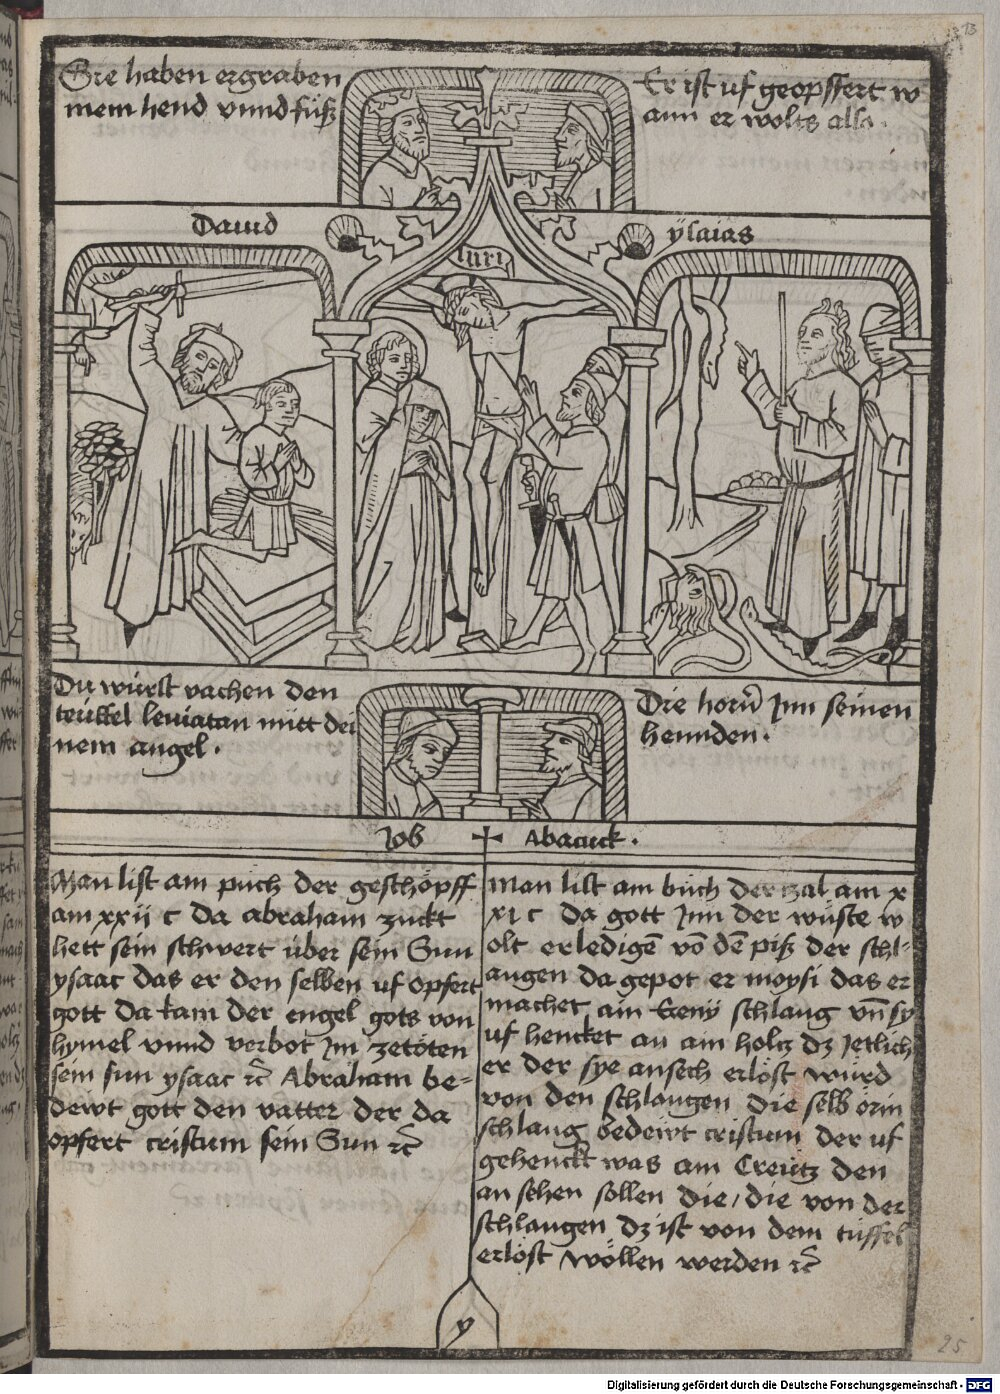 Sie haben ergraben
mein hend vnnd füß
Er ist uf geopffert w
ann er wolts also.
Dauid
ysaias
inri
Du würst vachen den
teüffel leuiatan mitt dei
nem angel.
Die horñ Jnn seinen
hennden.
Job
Abacuck.
Man list am püch der geschöpff
am xxii c da abraham zuckt
hett sein schwert über sein Sun
ysaac das er den selben uf opfert
gott da kam der engel gots von
hymel vnnd verbot jm zetöten
sein sun ysaac ꝛc̃ Abraham be=
deiwt gott den vatter der da
opfert cristum sein Sun ꝛc̃
Man list am büch der tzal am x
xi c da gott Jnn der wüste w
olt erledigẽ võ dẽ piß der schl=
angen da gepot er moysi das er
machet ain Eeny schlang vñ sy
uf hencket an am holtz dz Jetlich
er der sye ansech erlöst würd
von den schlangen die selb örin
schlang bedeiwt cristum der uf
gehenckt was am Creütz den
an sehen sollen die/die von der
schlangen dz ist von dem tüffel
erlöst wöllen werden ꝛc̃
y
25
Digitalisierung gefördert durch die Deutsche Forschungsgemeinschaft - DFG